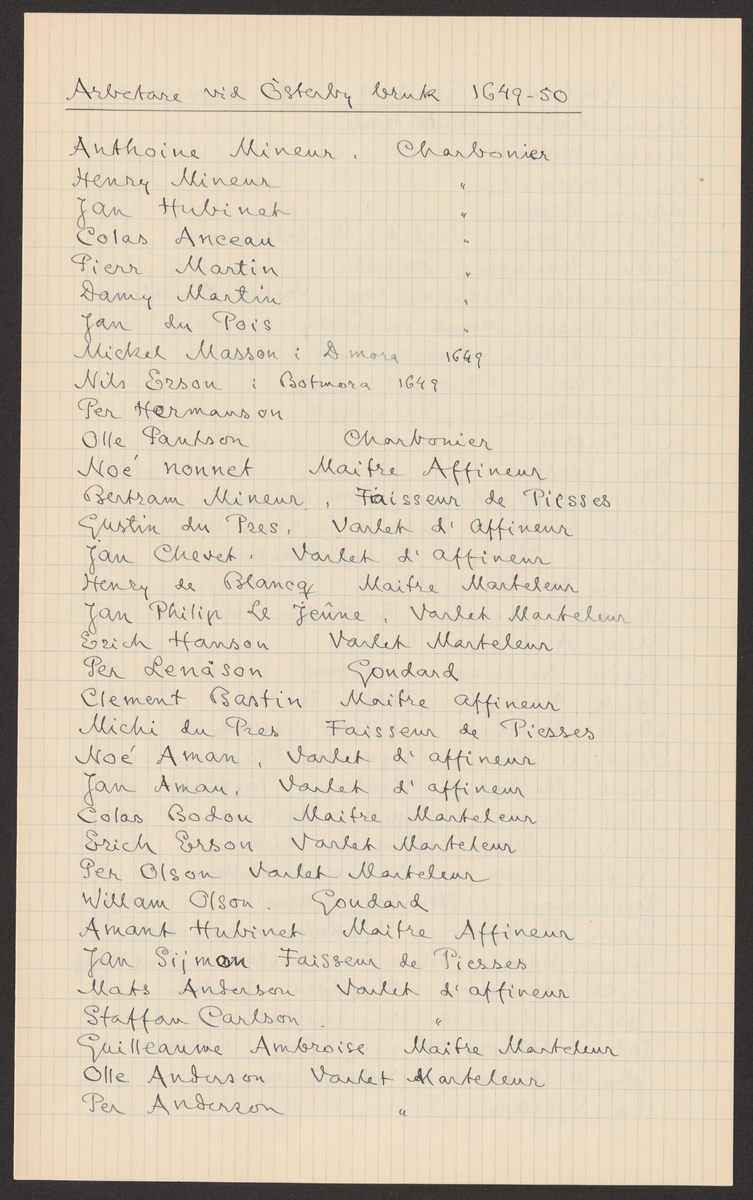 Arbetare vid Österby bruk 1649-50
Anthoine Mineur. Charbonier
Henry Mineur "
Jan Hubinet "
Colas Anceau "
Pierr Martin "
Damy Martin "
Jan du Pois "
Mickel Masson i Dmora 1649
Nils Erson i Botmora 1649
Per Hermanson
Olle Paulson Charbonier
Noé nonnet Maitre Affineur
Bertram Mineur, Faisseur de Piesses
Gustin du Pres, Varlet d' Affineur
Jan Chevet. Varlet d' affineur
Henry de Blancq Maitre Marteleur
Jan Philip Le Jeûne, Varlet Marteleur
Erich Hanson Varlet Marteleur
Per Lenåson Goudard
Clement Bastin Maitre affineur
Michi du Pres Faisseur de Piesses
Noé Aman, Varlet d' affineur
Jan Aman, Varlet d' affineur
Colas Bodou Maitre Marteleur
Erich Erson Varlet Marteleur
Per Olson Varlet Marteleur
Willam Olson. Goudard
Amant Hubinet Maitre Affineur
Jan Sijmon Faisseur de Piesses
Mats Anderson Varlet d'affineur
Staffan Carlson. "
Guilleaume Ambroise Maitre Marteleur
Olle Anderson Varlet Marteleur
Per Anderson "